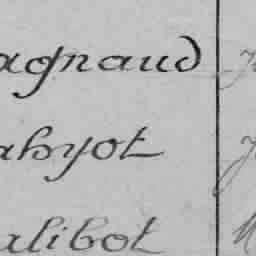 agnaud
ahyot
alibot